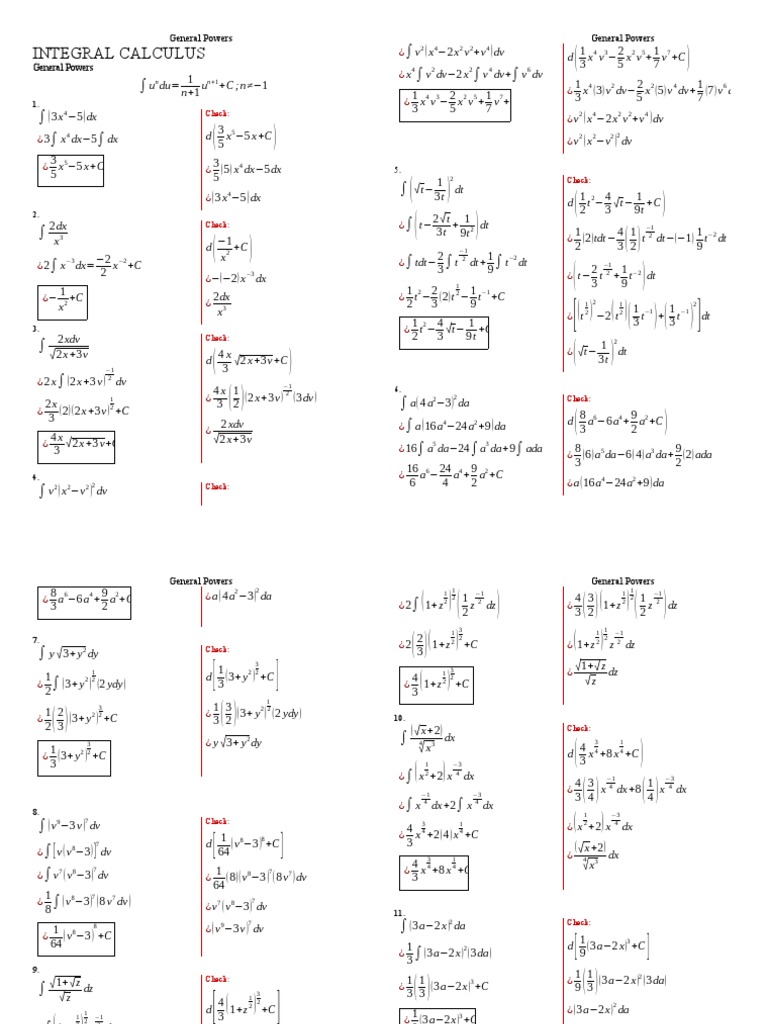 General Powers
INTEGRAL CALCULUS
General Powers
∫ u^n du = 1/(n+1) u^(n+1) + C ; n ≠ −1
1.
∫(3x^4−5)dx
¿3∫x^4dx−5∫dx
¿3/5 x^5−5x+C
Check:
d(3/5 x^5−5x+C)
¿3/5(5)x^4dx−5dx
¿(3x^4−5)dx
2.
∫2dx/x^3
¿2∫x^(−3)dx=−2/2 x^(−2)+C
¿−1/x^2+C
Check:
d(−1/x^2+C)
¿−(−2)x^(−3)dx
¿2dx/x^3
3.
∫2xdv/√(2x+3v)
¿2x∫(2x+3v)^(−1/2)dv
¿2x/3(2)(2x+3v)^(1/2)+C
¿4x/3√(2x+3v)+C
Check:
d(4x/3√(2x+3v)+C)
¿4x/3(1/2)(2x+3v)^(−1/2)(3dv)
¿2xdv/√(2x+3v)
4.
∫v^2(x^2−v^2)^2dv
Check:
General Powers
¿∫v^2(x^4−2x^2v^2+v^4)dv
¿x^4∫v^2dv−2x^2∫v^4dv+∫v^6dv
¿1/3 x^4v^3−2/5 x^2v^5+1/7 v^7+
d(1/3 x^4v^3−2/5 x^2v^5+1/7 v^7+C)
¿1/3 x^4(3)v^2dv−2/5 x^2(5)v^4dv+1/7(7)v^6
¿v^2(x^4−2x^2v^2+v^4)dv
¿v^2(x^2−v^2)^2dv
5.
∫(√t−1/3t)^2dt
¿∫(t−2√t/3t+1/9t^2)dt
¿∫tdt−2/3∫t^(−1/2)dt+1/9∫t^(−2)dt
¿1/2 t^2−2/3(2)t^(1/2)−1/9 t^(−1)+C
¿1/2 t^2−4/3√t−1/9t+C
Check:
d(1/2 t^2−4/3√t−1/9t+C)
¿1/2(2)tdt−4/3(1/2)t^(−1/2)dt−(−1)1/9 t^(−2)dt
¿(t−2/3 t^(−1/2)+1/9 t^(−2))dt
¿[(t^(1/2))^2−2(t^(1/2))(1/3 t^(−1))+(1/3 t^(−1))^2]dt
¿(√t−1/3t)^2dt
6.
∫a(4a^2−3)^2da
¿∫a(16a^4−24a^2+9)da
¿16∫a^5da−24∫a^3da+9∫ada
¿16/6 a^6−24/4 a^4+9/2 a^2+C
Check:
d(8/3 a^6−6a^4+9/2 a^2+C)
¿8/3(6)a^5da−6(4)a^3da+9/2(2)ada
¿a(16a^4−24a^2+9)da
General Powers
¿8/3 a^6−6a^4+9/2 a^2+C
¿a(4a^2−3)^2da
7.
∫y√(3+y^2)dy
¿1/2∫(3+y^2)^(1/2)(2ydy)
¿1/2(2/3)(3+y^2)^(3/2)+C
¿1/3(3+y^2)^(3/2)+C
Check:
d[1/3(3+y^2)^(3/2)+C]
¿1/3(3/2)(3+y^2)^(1/2)(2ydy)
¿y√(3+y^2)dy
8.
∫(v^9−3v)^7dv
¿∫[v(v^8−3)]^7dv
¿∫v^7(v^8−3)^7dv
¿1/8∫(v^8−3)^7(8v^7dv)
¿1/64(v^8−3)^8+C
Check:
d[1/64(v^8−3)^8+C]
¿1/64(8)(v^8−3)^7(8v^7dv)
¿v^7(v^8−3)^7dv
¿(v^9−3v)^7dv
9.
∫√(1+√z)/√z dz
Check:
d[4/3(1+z^(1/2))^(3/2)+C]
General Powers
¿2∫(1+z^(1/2))^(1/2)(1/2 z^(−1/2)dz)
¿2(2/3)(1+z^(1/2))^(3/2)+C
¿4/3(1+z^(1/2))^(3/2)+C
¿4/3(3/2)(1+z^(1/2))^(1/2)(1/2 z^(−1/2))dz
¿(1+z^(1/2))^(1/2)z^(−1/2)dz
¿√(1+√z)/√z dz
10.
∫(√x+2)/∜(x^3) dx
¿∫(x^(1/2)+2)x^(−3/4)dx
¿∫x^(−1/4)dx+2∫x^(−3/4)dx
¿4/3 x^(3/4)+2(4)x^(1/4)+C
¿4/3 x^(3/4)+8x^(1/4)+C
Check:
d(4/3 x^(3/4)+8x^(1/4)+C)
¿4/3(3/4)x^(−1/4)dx+8(1/4)x^(−3/4)dx
¿(x^(1/2)+2)x^(−3/4)dx
¿(√x+2)/∜(x^3) dx
11.
∫(3a−2x)^2da
¿1/3∫(3a−2x)^2(3da)
¿1/3(1/3)(3a−2x)^3+C
(3a−2x)^3+C
Check:
d[1/9(3a−2x)^3+C]
¿1/9(1/3)(3a−2x)^2(3da)
¿(3a−2x)^2da